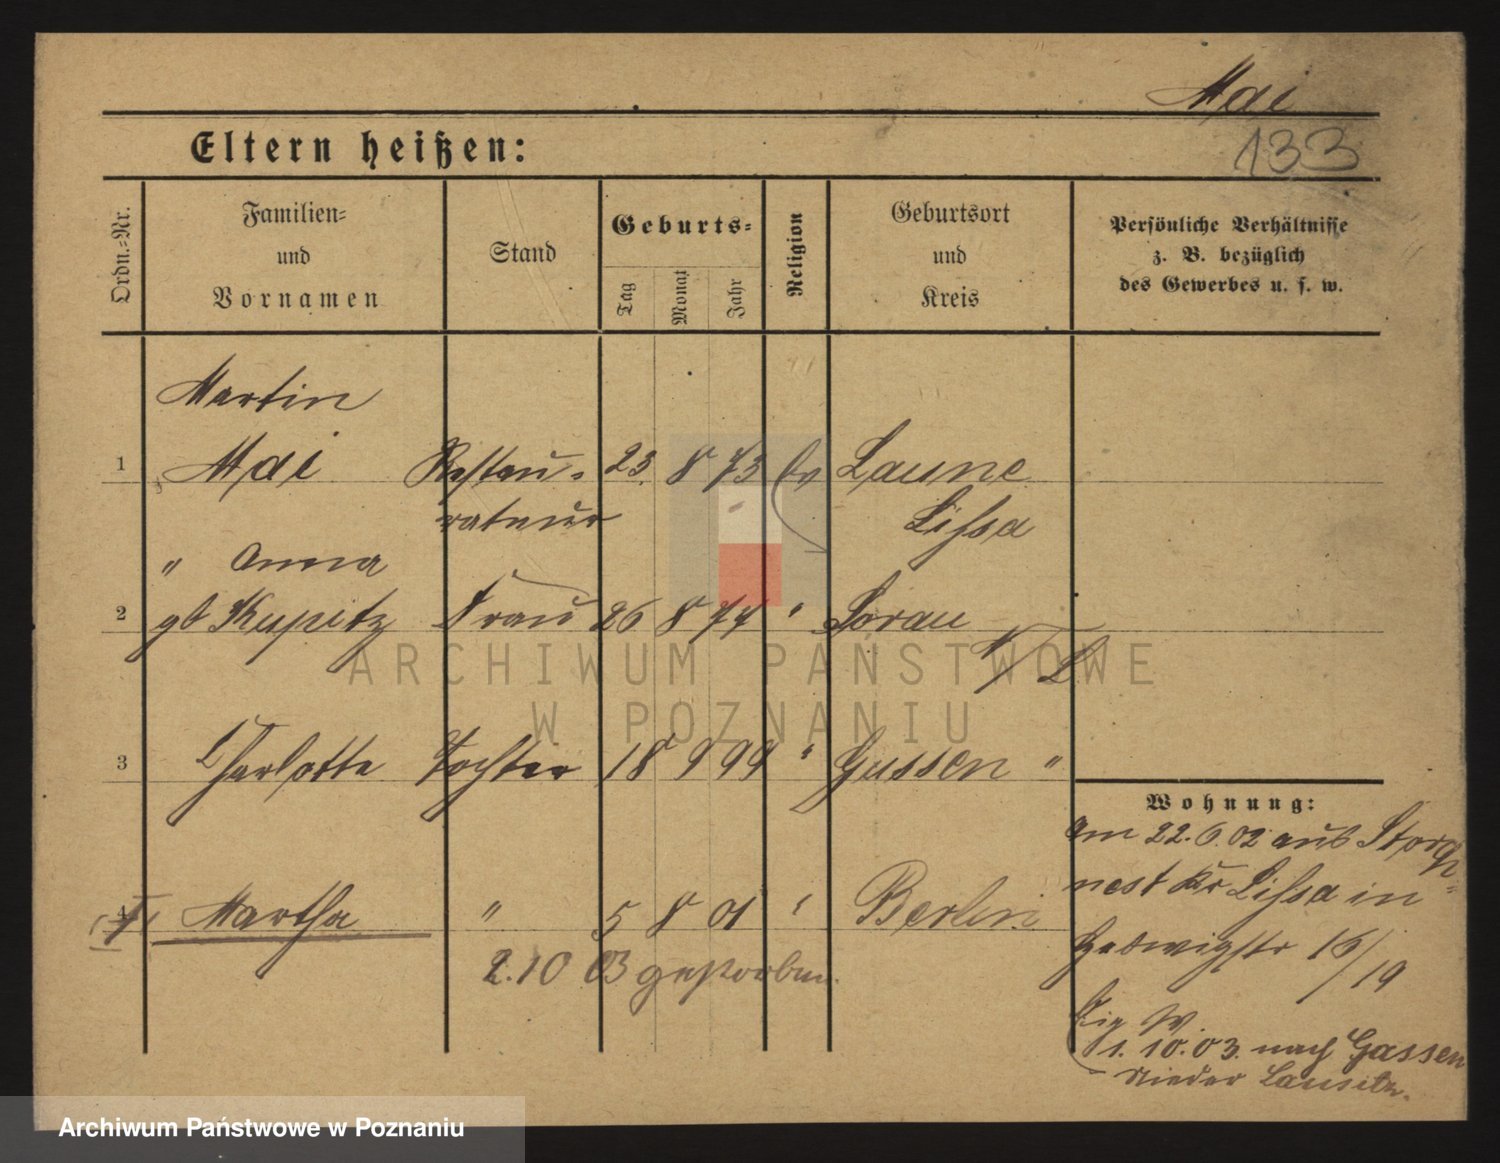 Mai
133
Eltern heißen:
Ordn.=Nr.
Familien=
und
Vornamen
Stand
Geburts=
Tag
Monat
Jahr
Religion
Geburtsort
und
Kreis
Persönliche Verhältnisse
z. B. bezüglich
des Gewerbes u. s. w.
Martin
1 Mai Restau= 23. 8 73 ev Laune
rateur Lissa
" Anna
2 gb Kupitz Frau 26 8 77 " Sorau
N/L
3 Charlotte Tochter 18 9 99 " Gassen "
4 Martha " 5 8 01 " Berlin
2.10 03 gestorben.
Wohnung:
am 22.6.02 aus Storch=
nest Kr Lissa in
Hedwigstr 16/19
Eig W.
1. 10. 03. nach Gassen
Nieder Lausitz.
ARCHIWUM PAŃSTWOWE
W POZNANIU
Archiwum Państwowe w Poznaniu